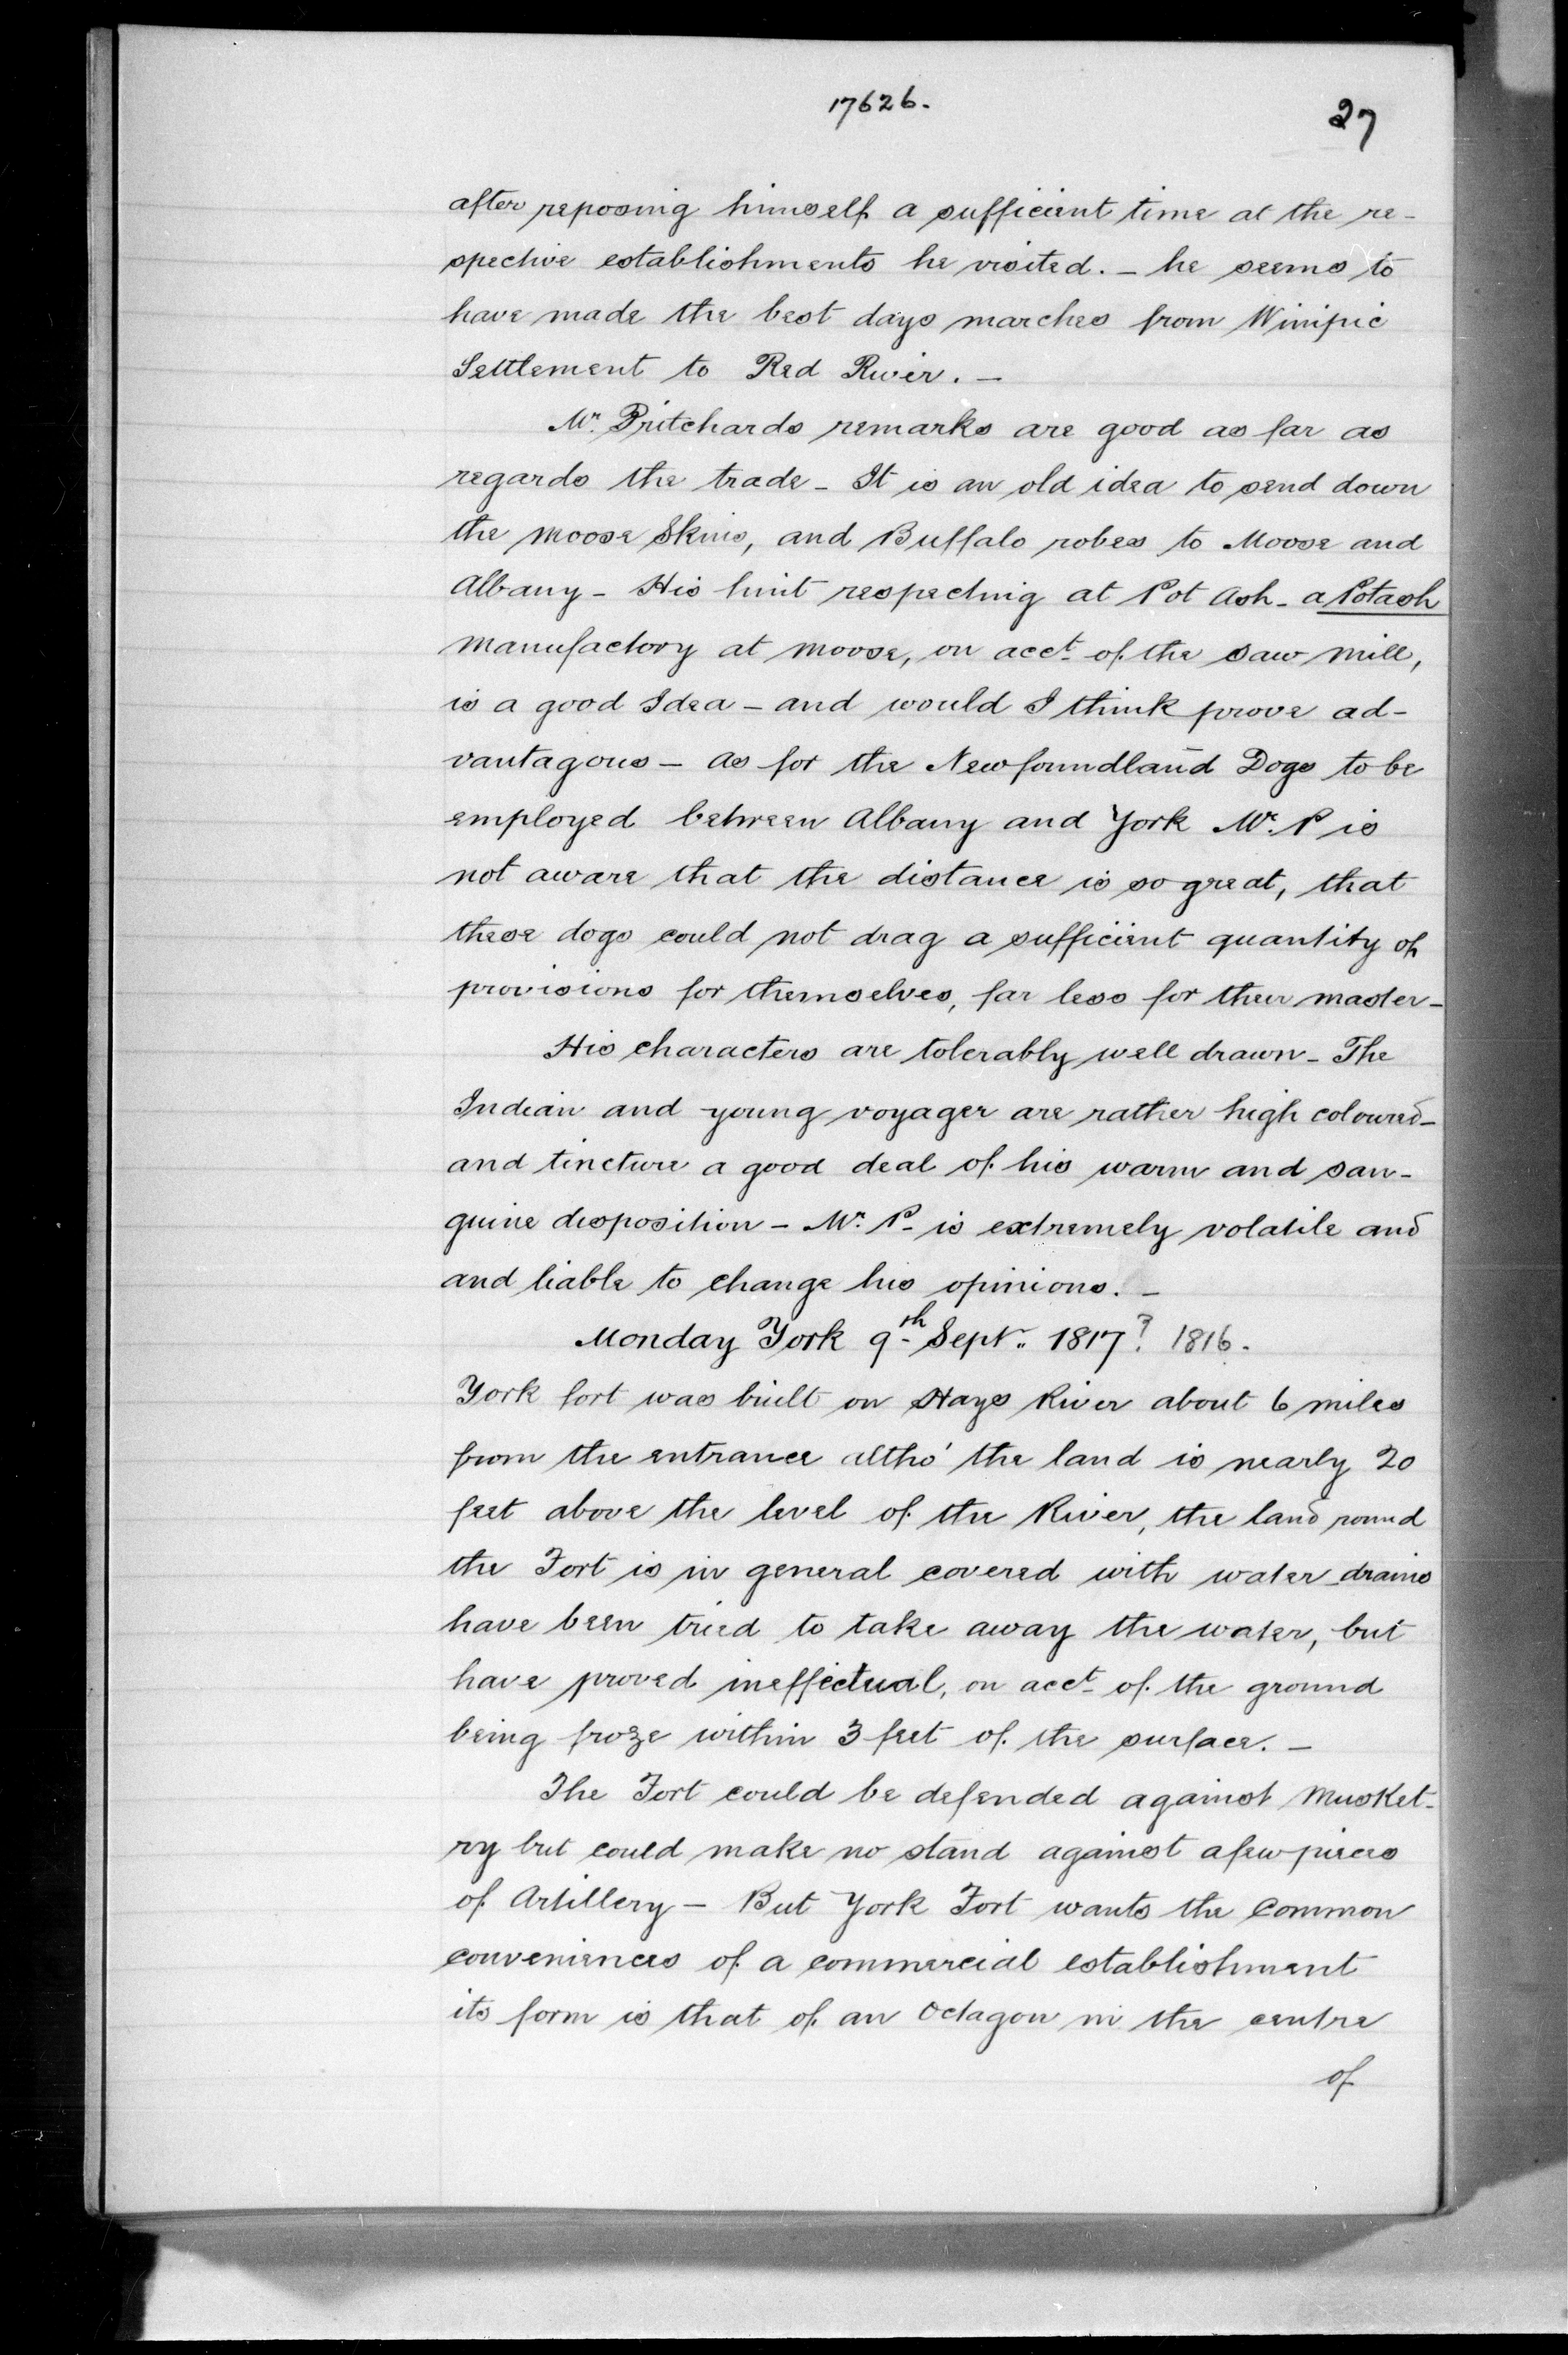 17626.
27
after reposing himself a sufficient time at the re-
spective establishments he visited. - he seems to
have made the best days marches from Winipic
Settlement to Red River. -
Mr. Pritchards remarks are good as far as
regards the trade - It is an old idea to send down
the Moose Skins, and Buffalo robes to Moose and
Albany - His hint respecting at Pot Ash - a Potash
manufactory at Moose, on acct. of the saw mill,
is a good Idea - and would I think prove ad-
vantagous - as for the Newfoundland Dogs to be
employed between Albany and York Mr. P is
not aware that the distance is so great, that
these dogs could not drag a sufficient quantity of
provisions for themselves, far less for their master -
His characters are tolerably well drawn - The
Indian and young voyager are rather high coloured -
and tincture a good deal of his warm and san-
guine disposition - Mr. P - is extremely volatile and
and liable to change his opinions. -
Monday York 9th Sept. 1817? 1816.
York fort was built on Hays River about 6 miles
from the entrance altho' the land is nearly 20
feet above the level of the River, the land round
the Fort is in general covered with water - drains
have been tried to take away the water, but
have proved ineffectual, on acct. of the ground
being froze within 3 feet of the surface. -
The Fort could be defended against Musket-
ry but could make no stand against a few pieces
of Artillery - But York Fort wants the common
conveniences of a commercial establishment
its form is that of an Octagon in the centre
of